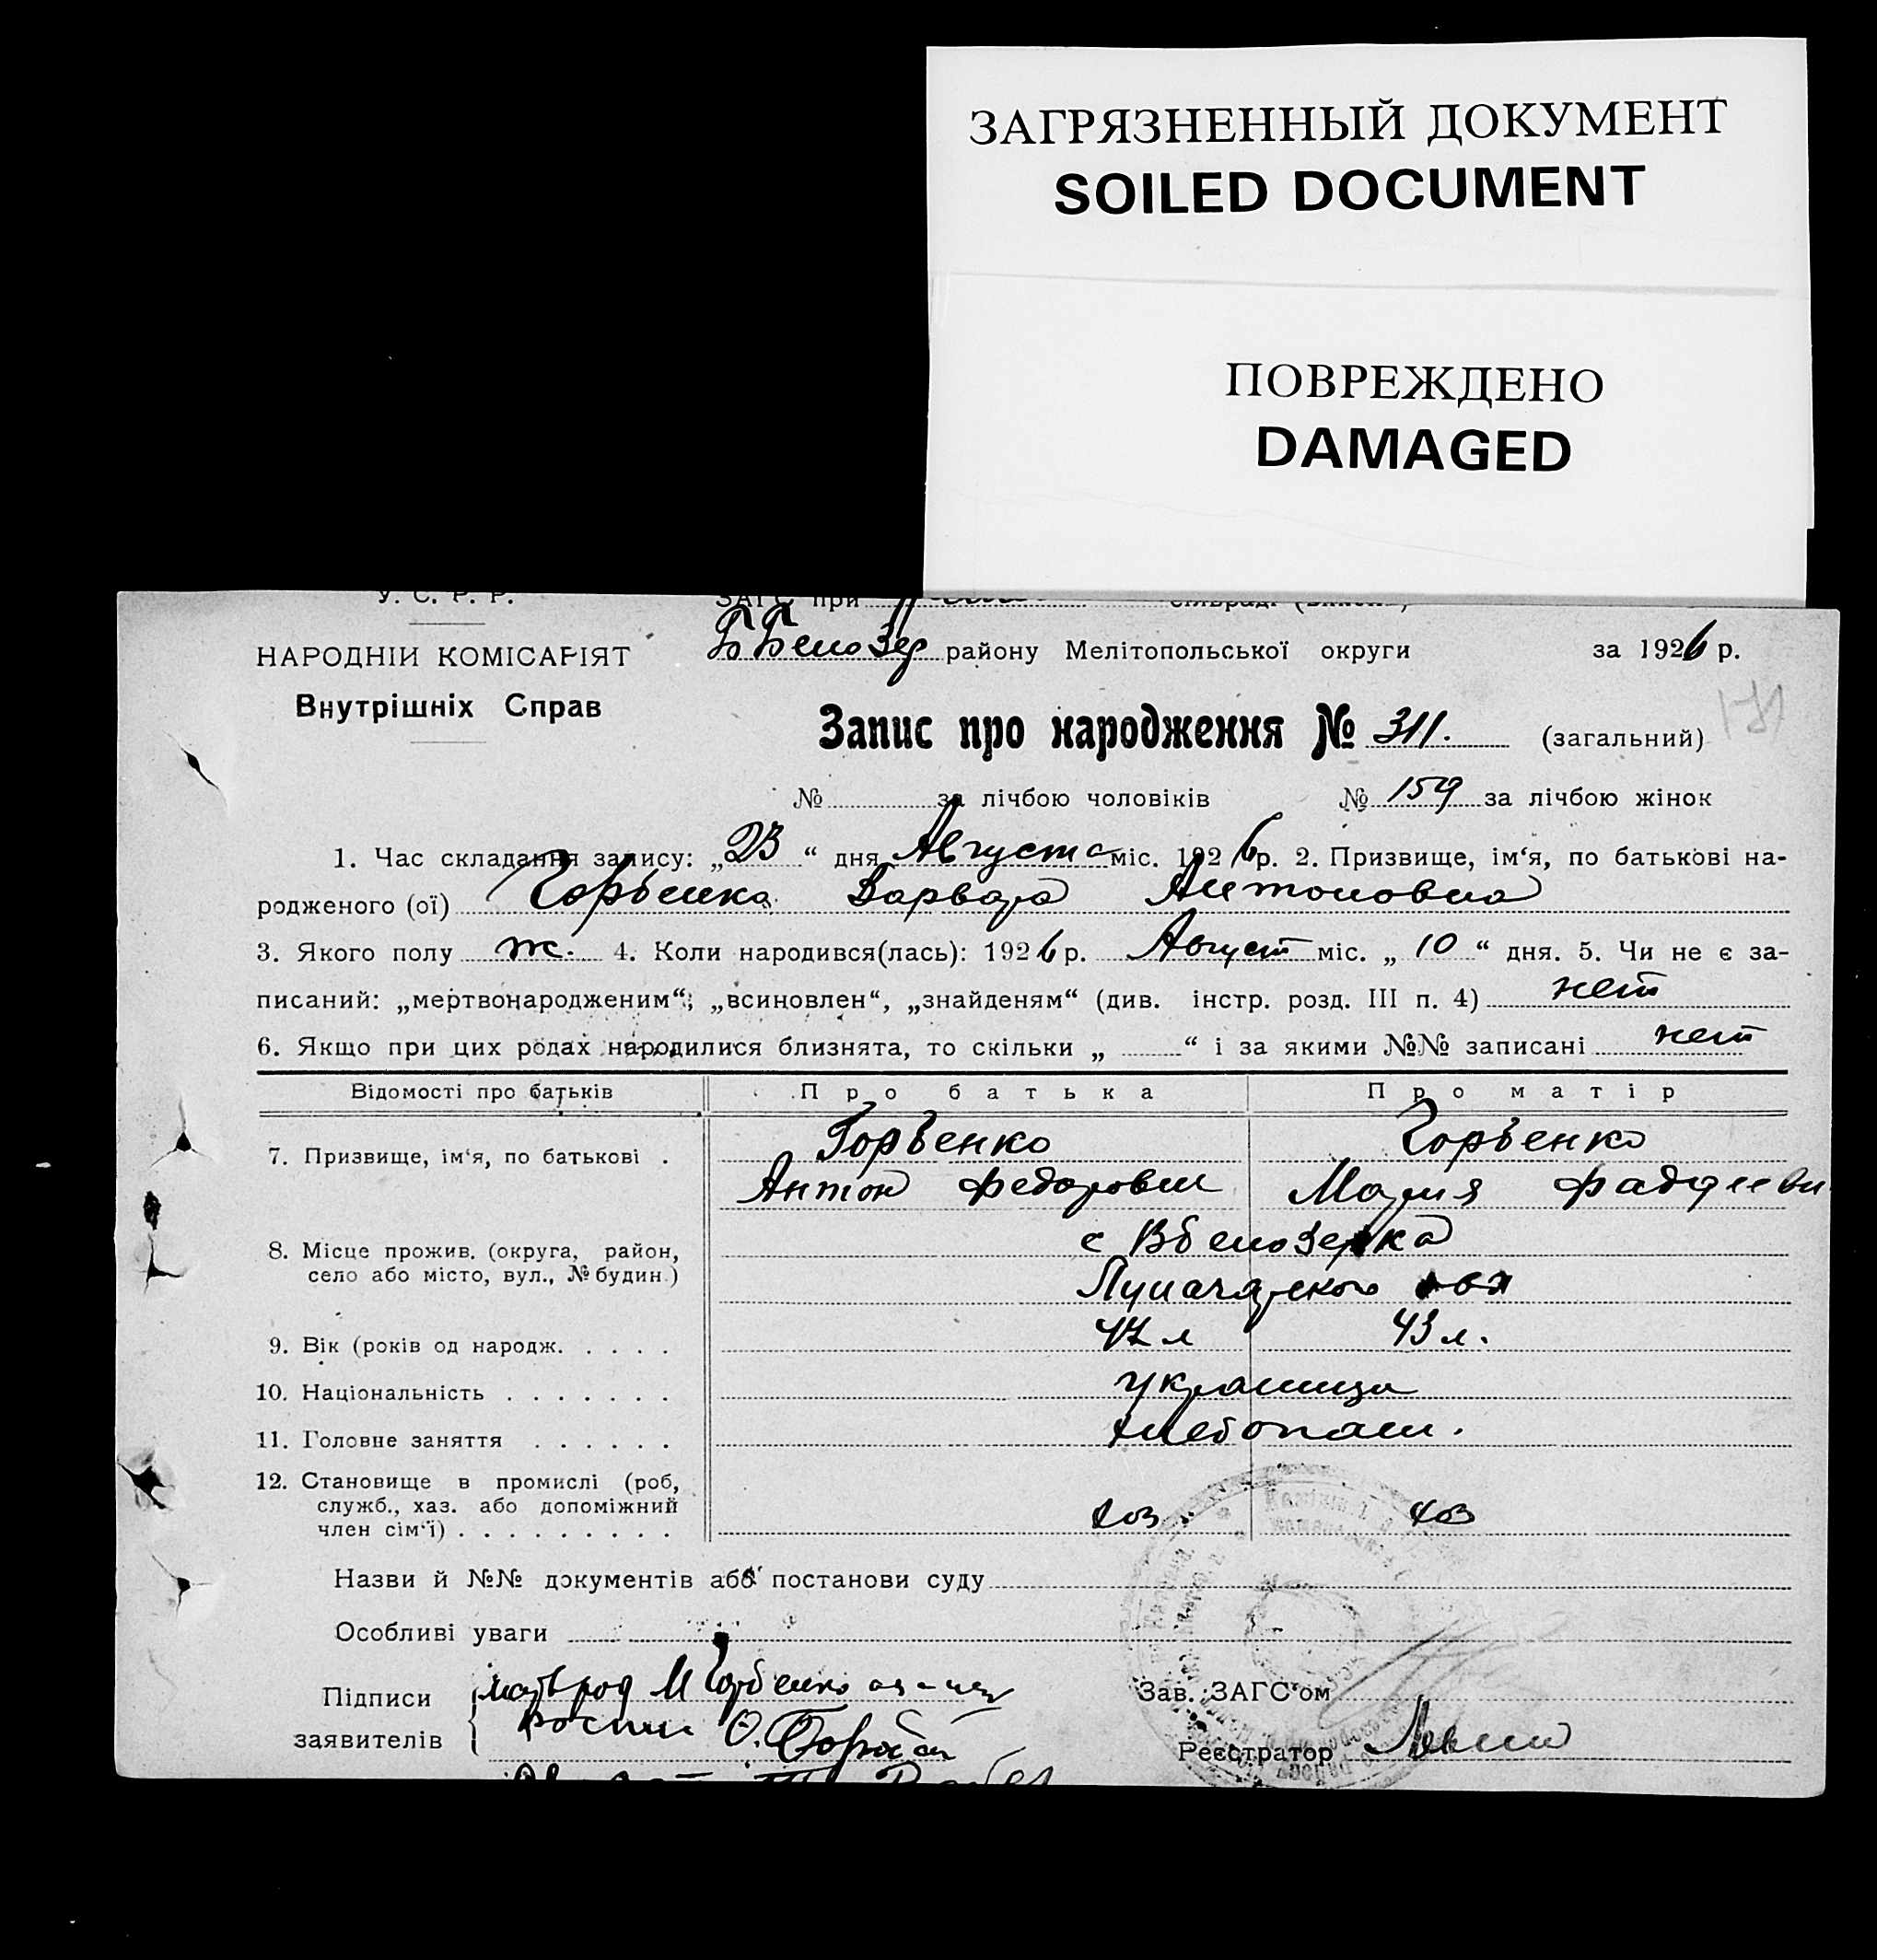 ЗАГРЯЗНЕННЫЙ ДОКУМЕНТ
SOILED DOCUMENT
ПОВРЕЖДЕНО
DAMAGED
У. С. Р. Р.
ЗАГС при
НАРОДНІЙ КОМІСАРІЯТ
Внутрішніх Справ
ББелозер району Мелітопольської округи за 1926 р.
Запис про народження № 311. (загальний)
№ за лічбою чоловіків № 159 за лічбою жінок
1. Час складання запису: „23“ дня Августа міс. 1926 р. 2. Призвище, ім‘я, по батькові на-
родженого (ої) Горбенко Варвара Антоновна
3. Якого полу ж. 4. Коли народився(лась): 1926 р. Август міс. „10“ дня. 5. Чи не є за-
писаний: „мертвонародженим“; „всиновлен“, „знайденям“ (див. інстр. розд. III п. 4) нет
6. Якщо при цих родах народилися близнята, то скільки „ “ і за якими №№ записані нет
Відомості про батьків Про батька Про матір
7. Призвище, ім‘я, по батькові . Горбенко Горбенко
Антон Федорович Мария Фаддеевн
8. Місце прожив. (округа, район,
село або місто, вул., № будин.)
с Вбелозерка
9. Вік (років од народж. . . . . 47 л 43 л.
10. Національність . . . . . . . украинцы
11. Головне заняття . . . . . . хлебопаш.
12. Становище в промислі (роб,
служб., хаз. або допоміжний
член сім‘ї) . . . . . . . . . хоз. хоз
Назви й №№ документів або постанови суду
Особливі уваги
Підписи
заявителів
М Горбенко
Зав. ЗАГС‘ом
Реєстратор